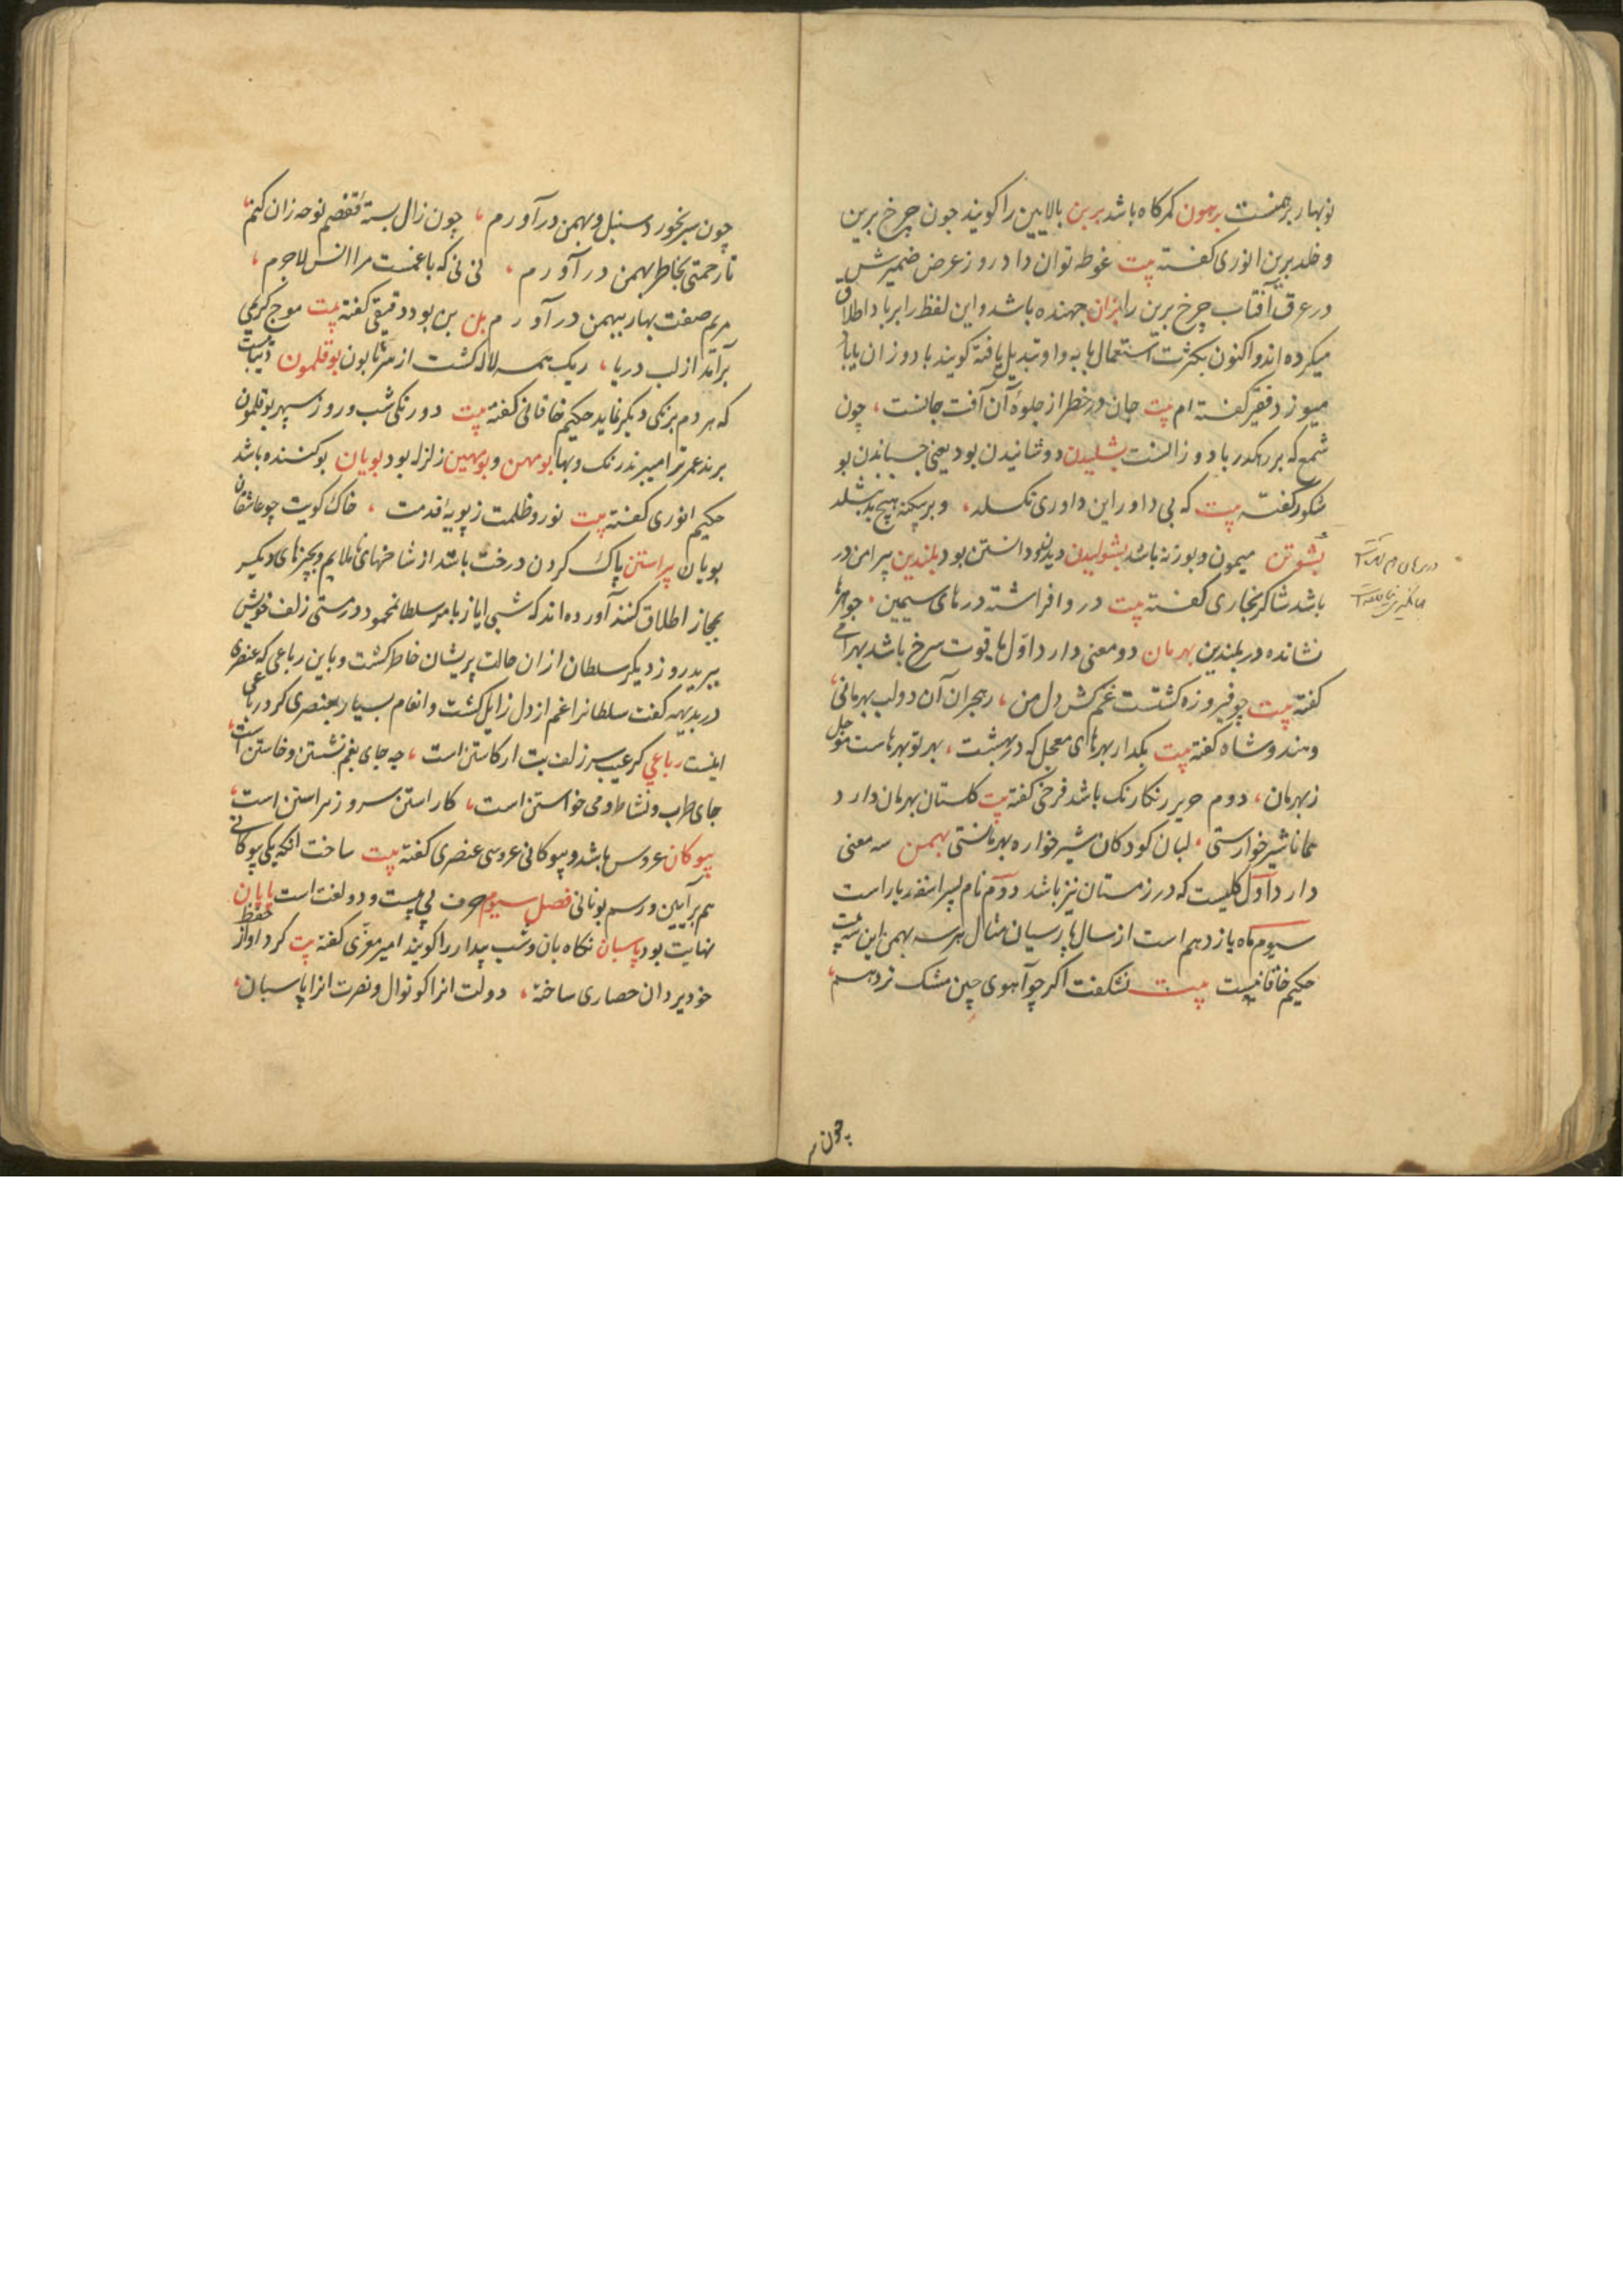 نوبهار برهمنست برهون کمرکاه باشد برین بالایین را کویند چون چرخ برین
و خلد برین انوری کفته بیت غوطه توان داد روز عرض ضمیرش
در عرق آفتاب چرخ برین را بزان جهنده باشد و این لفظ را بر باد اطلاق
میکرده اند و اکنون بکثرت استعمال با به واو تبدیل یافته کویند باد وزان یا باد
میوزد فقیر کفته ام بیت جان در خطر از جلوهٔ آن آفت جانست، چون
شمع که بر رهکذر باد وزانست بشلیدن دوشانیدن بود یعنی چسباندن بو
شکور کفته بیت که بی داور این داوری نکسلد، و بر بیکنه هیچ بد بشلد
بشوتن میمون و بوزنه باشد بشولیدن دیدن و دانستن بود بلندین پیرامن در
باشد شاکر بخاری کفته بیت در و افراشته درهای سیمین، جواهرها
نشانده در بلندین بهرمان دو معنی دارد اول یاقوت سرخ باشد بهرامی
کفته بیت چو فیروزه کشتست غم کش دل من، ز هجران آن دو لب بهرمانی،
و هندوشاه کفته بیت بکدار بهرهای معجل که در بهشت، بهر تو بهرهاست موجل
ز بهرمان، دوم حریر رنکارنک باشد فرخی کفته بیت کلستان بهرمان دارد
همانا شیرخوارستی، لبان کودکان شیرخواره بهرمانستی بهمن سه معنی
دارد اول کلیست که در زمستان نیز باشد دوم نام پسر اسفندیار است
سیوم ماه یازدهم است از سال پارسیان مثال هر سه بهمن این سه بیت
حکیم خاقانیست بیت نشکفت اکر چو آهوی چین مشک بر دهم،
چون س
چون سر بخور د سنبل و بهمن در آورم، چون زال بستهٔ قفصم نوحه زان کنم،
تا رحمتی بخاطر بهمن در آورم، نی نی که با غمست مرا انس لاجرم،
مریم صفت بهار ببهمن در آورم بن بن بود دقیقی کفته بیت موج کریمی
برآمد از لب دریا، ریک همه لاله کشت از سر تا بون بوقلمون دیباست
که هر دم برنکی دیکر نماید حکیم خاقانی کفته بیت دورنکی شب و روز سپهر بوقلمون
برند عمر ترا میبرند رنک و بها بومهن و بومهین زلزله بود بویان بوکننده باشد
حکیم انوری کفته بیت نور و ظلمت ز پویهٔ قدمت، خاک کویت چو عاشقان
بویان پیراستن پاک کردن درخت باشد از شاخهای ناملایم و بچیزهای دیکر
بمجاز اطلاق کنند آورده اند که شبی ایاز بامر سلطان محمود در مستی زلف خویش
ببرید روز دیکر سلطان از ان حالت پریشان خاطر کشت و باین رباعی که عنصری
در بدیهه کفت سلطانرا غم از دل زایل کشت و انعام بسیار بعنصری کرد رباعی
اینست رباعی کر عیب سر زلف بت از کاستن است، چه جای بغم نشستن و خاستن است،
جای طرب و نشاط و می خواستن است، کاراستن سرو ز پیراستن است،
بیوکان عروس باشد و بیوکانی عروسی عنصری کفته بیت ساخت انکه یکی بیوکانی
هم بر آیین و رسم یونانی فصل سیوم حرف پی بیست و دو لغت است پایان
نهایت بود پاسبان نکاه بان و شب بیدار را کویند امیر معزی کفته بیت کرد او از حفظ
خود یزدان حصاری ساخته، دولت انرا کوتوال و نصرت انرا پاسبان،